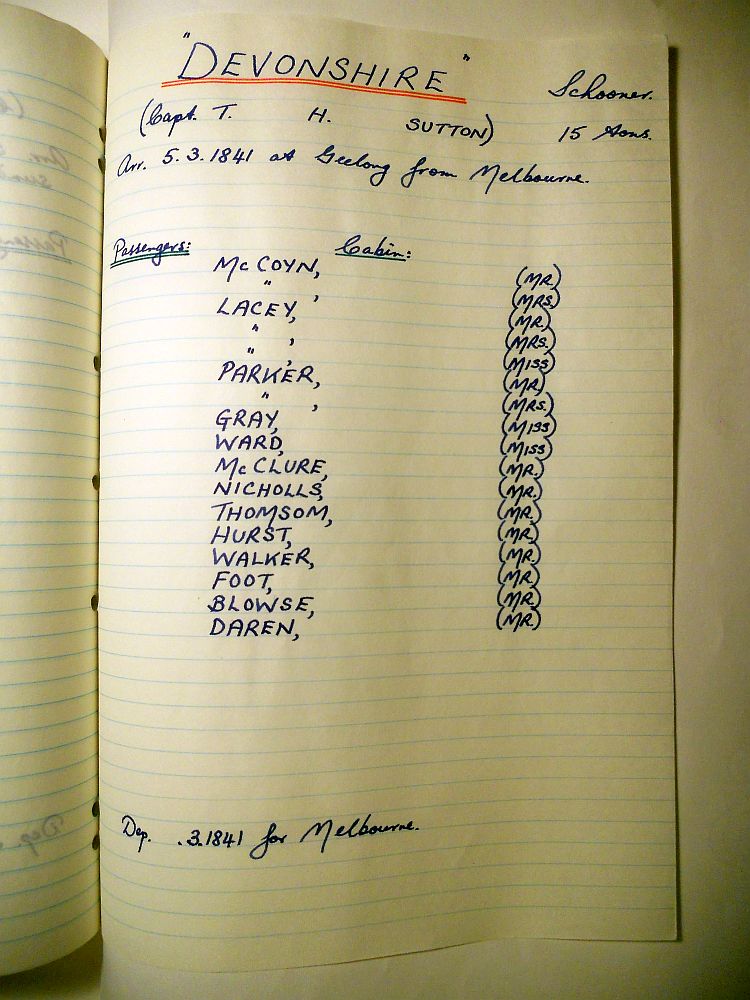 "DEVONSHIRE"
Schooner.
(Capt. T. H. SUTTON) 15 tons.
Arr. 5.3.1841 at Geelong from Melbourne.
Passengers: Cabin:
McCOYN, (MR.)
" , (MRS.)
LACEY, (MR.)
" , (MRS.)
" , (MISS
PARKER, (MR)
" , (MRS.)
GRAY, (MISS
WARD, (MISS
McCLURE, (MR.)
NICHOLLS, (MR.)
THOMSOM, (MR.
HURST, (MR.)
WALKER, (MR.
FOOT, (MR.
BLOWSE, (MR.)
DAREN, (MR.)
Dep. .3.1841 for Melbourne.